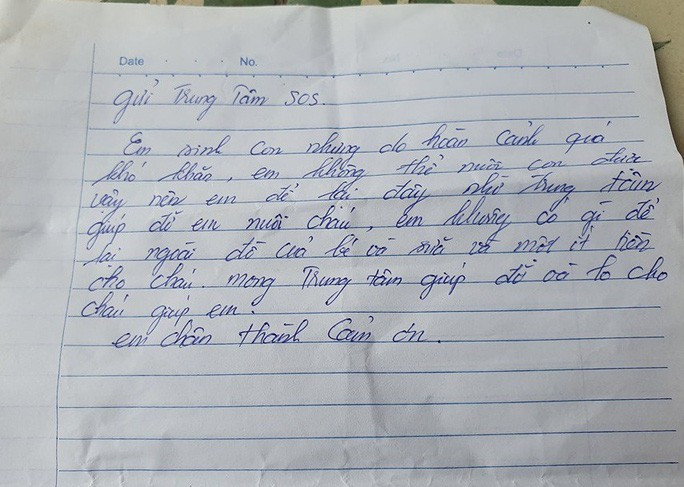 Date No.
Gửi Trung Tâm SOS.
Em sinh con nhưng do hoàn cảnh quá
khó khăn, em không thể nuôi con được
vậy nên em để lại đây nhờ trung tâm
giúp đỡ em nuôi cháu, em không có gì để
lại ngoài đồ của bé và sữa và một ít tiền
cho cháu. mong Trung tâm giúp đỡ và lo cho
cháu giúp em.
em chân thành cảm ơn.